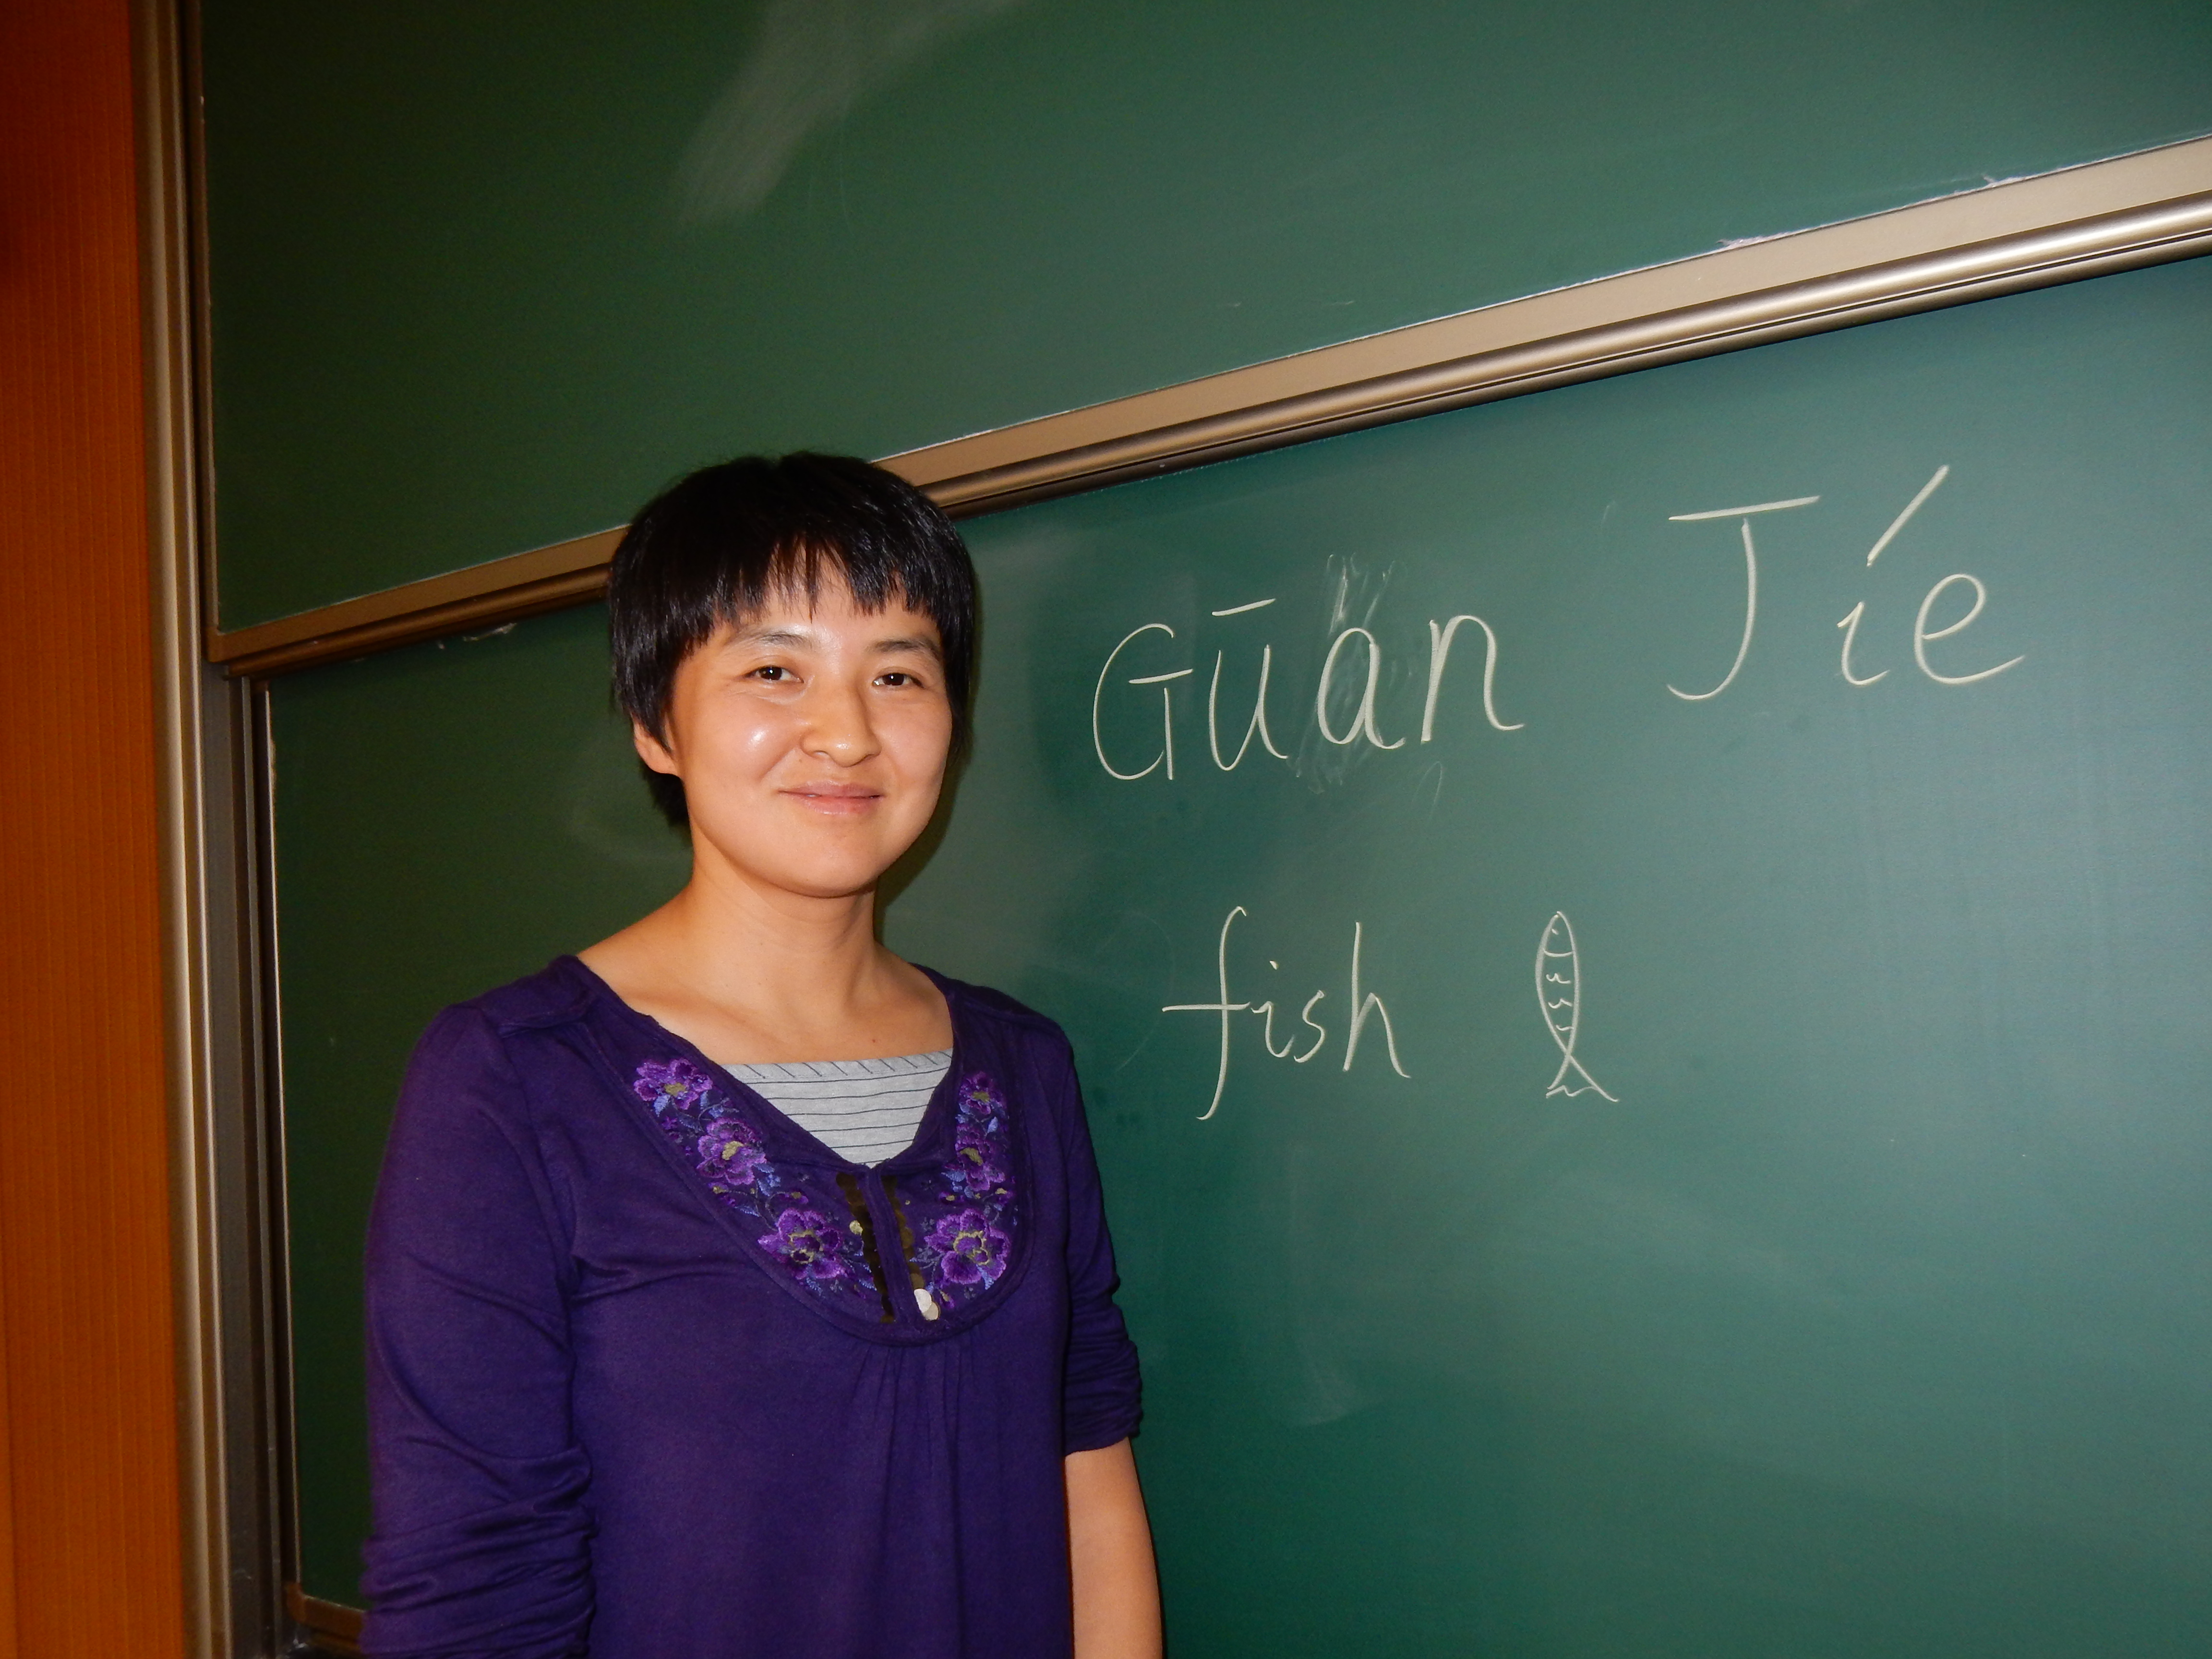 Gūan Jíe
fish